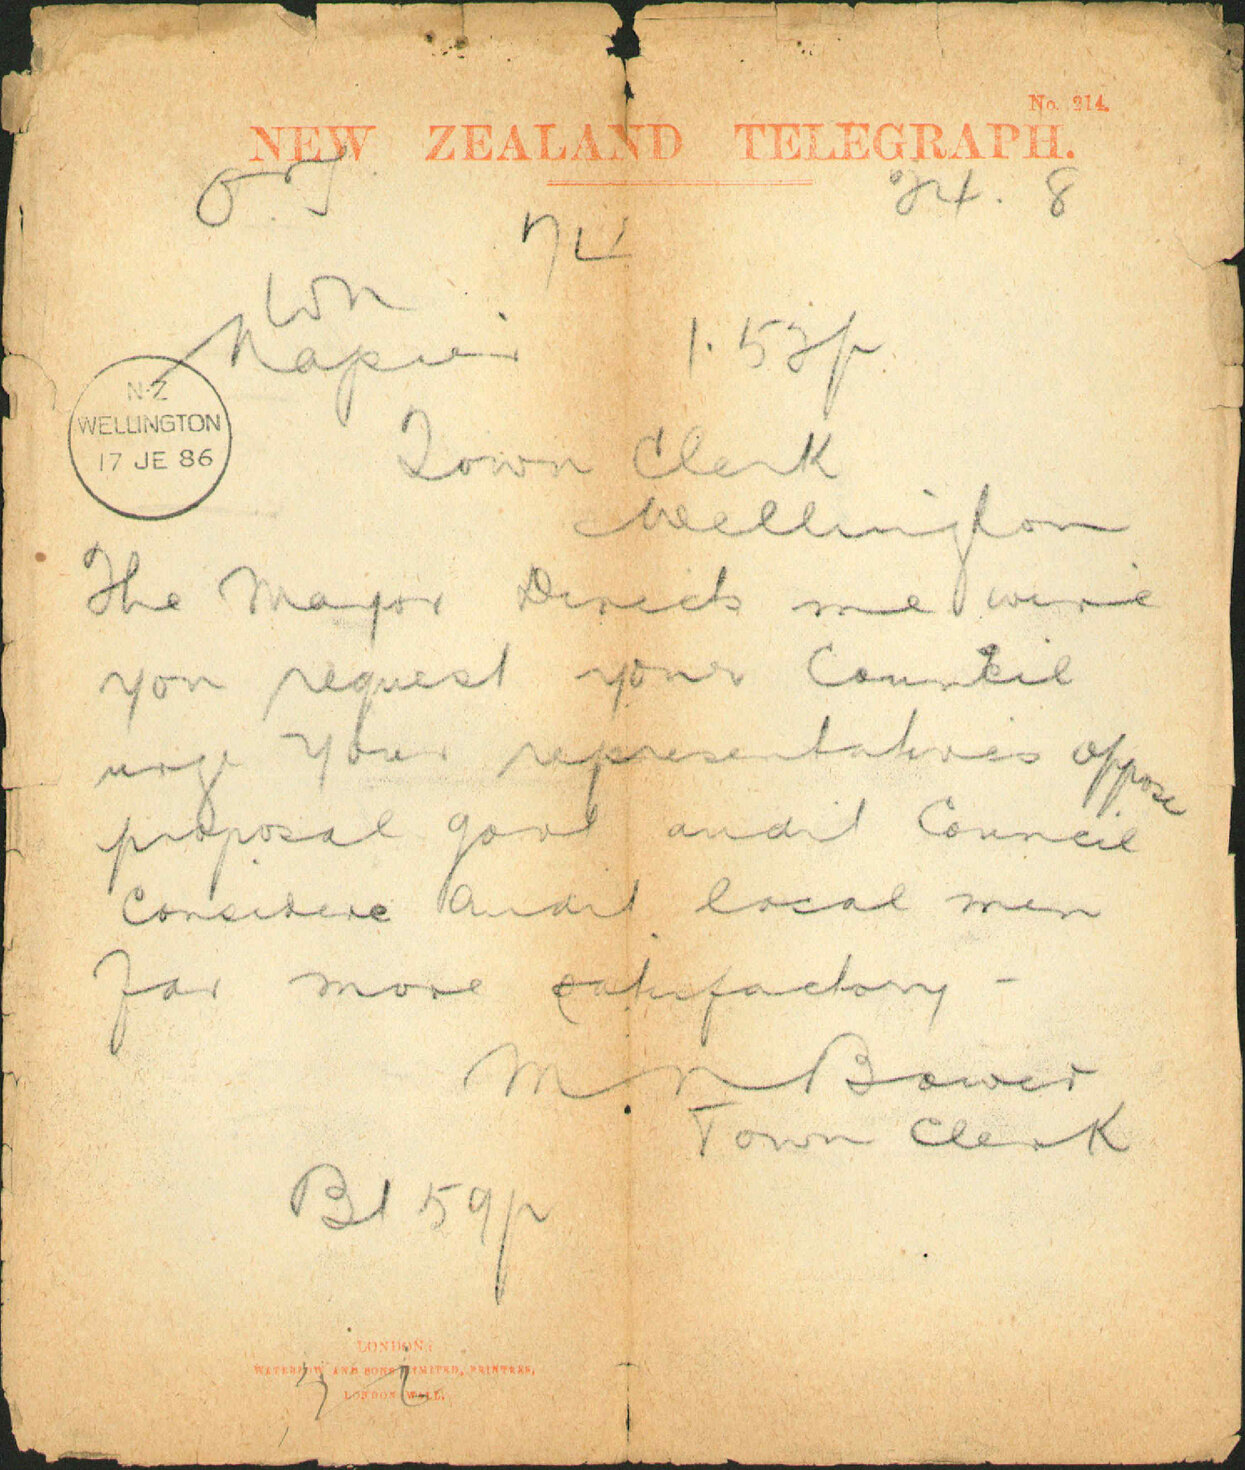 No. 214.
NEW ZEALAND TELEGRAPH.
8
Wn
Napier 1.53p
N·Z
WELLINGTON
17 JE 86
Town Clerk
Wellington
The Mayor Directs me wire
you request your Council
urge your representatives oppose
proposal govt audit Council
Considere audit local men
far more satisfactory -
M. N Bower
Town Clerk
B1 59p
LONDON:
WATERLOW AND SONS LIMITED, PRINTERS,
LONDON WALL.